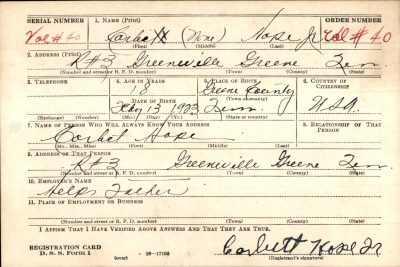 SERIAL NUMBER 1. NAME (Print) ORDER NUMBER
Vol # 40 Corbett (None) Hope Jr Vol # 40
(First) (Middle) (Last)
2. ADDRESS (Print)
R#3 Greeneville Greene Tenn
(Number and street or R. F. D. number) (Town) (County) (State)
3. TELEPHONE 4. AGE IN YEARS 5. PLACE OF BIRTH 6. COUNTRY OF CITIZENSHIP
18 Greene County
DATE OF BIRTH (Town or county)
13 1923 Tenn USA
(Exchange) (Number) (Mo.) (Day) (Yr.) (State or country)
7. NAME OF PERSON WHO WILL ALWAYS KNOW YOUR ADDRESS 8. RELATIONSHIP OF THAT PERSON
Corbet Hope
(Mr., Mrs., Miss) (First) (Middle) (Last)
9. ADDRESS OF THAT PERSON
R#3 Greeneville Greene Tenn
(Number and street or R. F. D. number) (Town) (County) (State)
10. EMPLOYER'S NAME
Helps Father
11. PLACE OF EMPLOYMENT OR BUSINESS
(Number and street or R. F. D. number) (Town) (County) (State)
I AFFIRM THAT I HAVE VERIFIED ABOVE ANSWERS AND THAT THEY ARE TRUE.
REGISTRATION CARD
D. S. S. Form 1 (over) 16—17105 Corbett Hope Jr
(Registrant's signature)